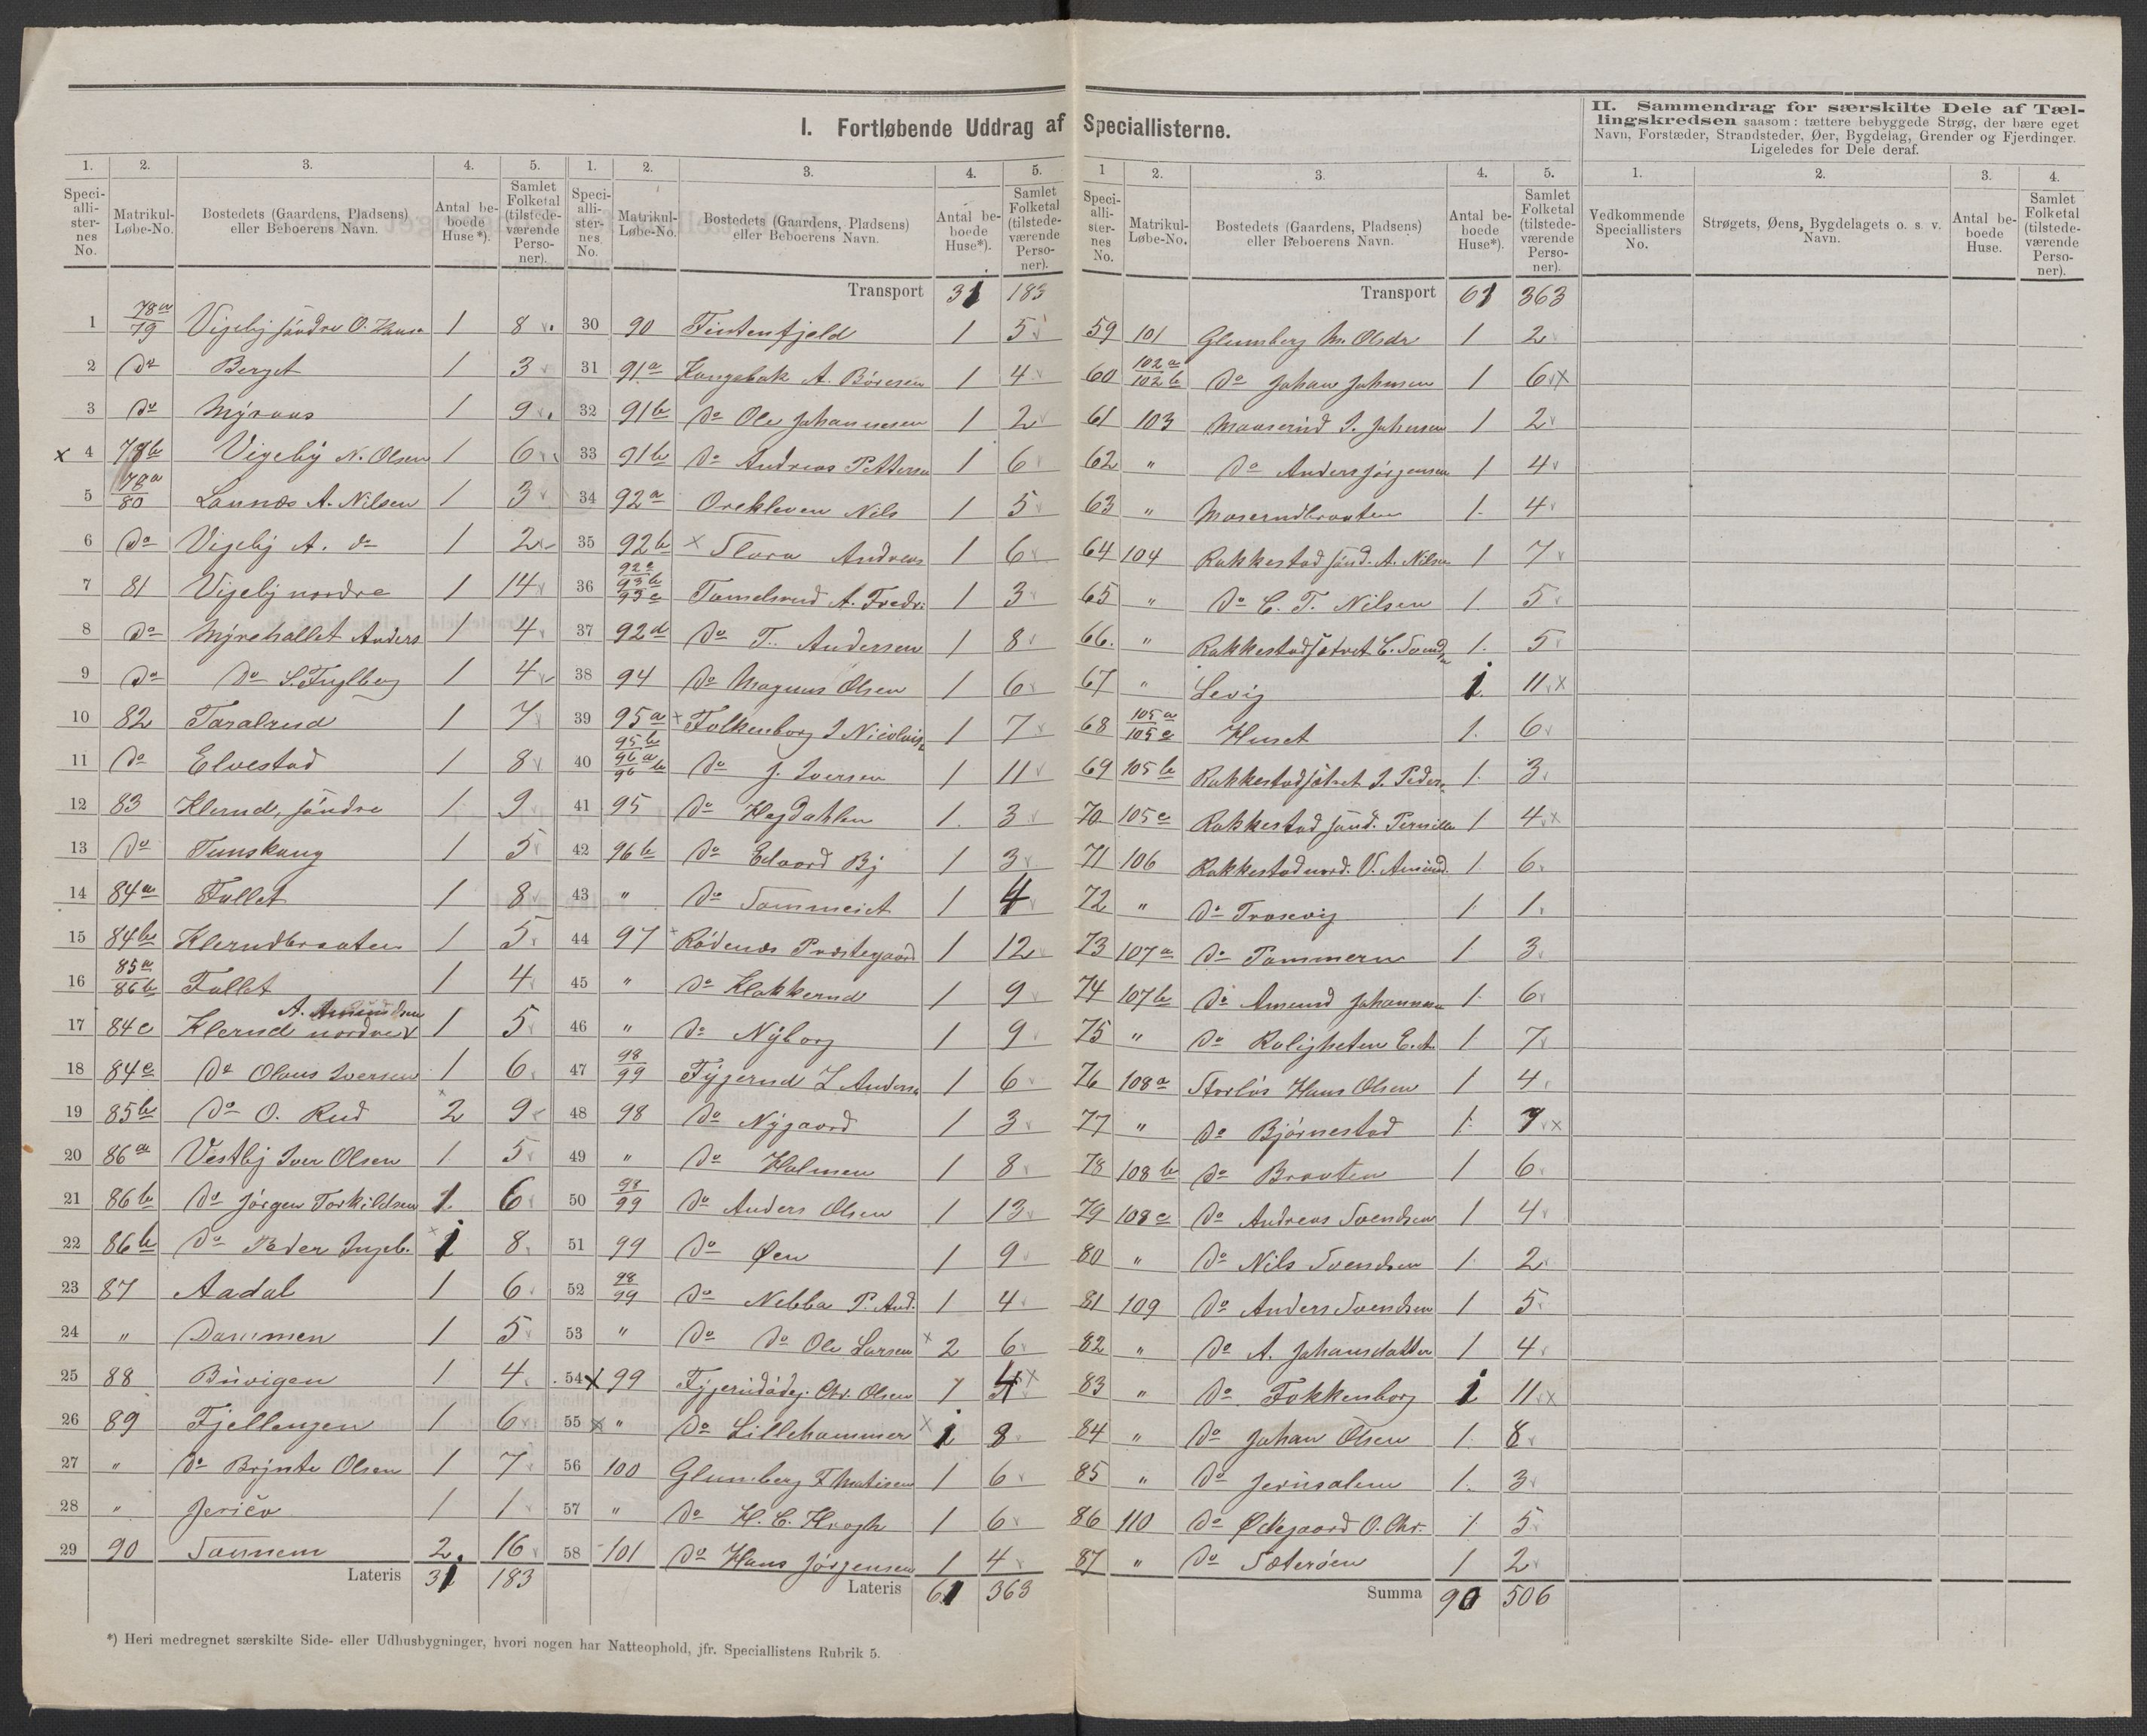 I. Fortløbende Uddrag af Speciallisterne.
II. Sammendrag for særskilte Dele af Tæl-
lingskredsen saasom: tættere bebyggede Strøg, der bære eget
Navn, Forstæder, Strandsteder, Øer, Bygdelag, Grender og Fjerdinger.
Ligeledes for Dele deraf.
1. 2. 3. 4. 5.
Speci-alli-ster-nes No. Matrikul-Løbe-No. Bostedets (Gaardens, Pladsens) eller Beboerens Navn. Antal be-boede Huse*). Samlet Folketal (tilstede-værende Perso-ner).
1 78a/79 Vigeby söndre O. Hans 1 8
2 Do Berget 1 3
3 Do Myraas 1 9
x 4 78b Vigeby N. Olsen 1 6
5 78a/80 Launæs A. Nilsen 1 3
6 Do Vigeby A. do 1 2
7 81 Vigeby nordre 1 14
8 Do Myrehallet Anders 1 4
9 Do Do S. Fuglberg 1 4
10 82 Taralrud 1 7
11 Do Elvestad 1 8
12 83 Klerud, söndre 1 9
13 Do Tunskaug 1 5
14 84a Fallet 1 8
15 84b Klerudbraaten 1 5
16 85a/86b Fallet 1 4
17 84c Klerud nordre A. Amundsen 1 5
18 84e Do Olaus Iversen 1 6
19 85b Do O. Rud x 2 9
20 86a Vestby Iver Olsen 1 5
21 86b Do Jörgen Torkildsen 1 6
22 86b Do Peder Ingeb. x 1 8
23 87 Aadal 1 6
24 " Dammen 1 5
25 88 Buvigen 1 4
26 89 Fjellengen 1 6
27 " Do Brynte Olsen 1 7
28 " Jerico 1 1
29 90 Sannem 2 16
Lateris 31 183
1. 2. 3. 4. 5.
Speci-alli-ster-nes No. Matrikul-Løbe-No. Bostedets (Gaardens, Pladsens) eller Beboerens Navn. Antal be-boede Huse*). Samlet Folketal (tilstede-værende Perso-ner).
Transport 31 183
30 90 Tintenfjeld 1 5
31 91a Kaugebak A. Böresen 1 4
32 91b Do Ole Johannesen 1 2
33 91b Do Andreas Pettersen 1 6
34 92a Orekleven Nils 1 5
35 92b x Slora Andreas 1 6
36 92c/93b/93c Tomelsrud A. Fredr. 1 3
37 92d Do T. Andersen 1 8
38 94 Do Magnus Olsen 1 6
39 95a x Folkenborg J Nicolais 1 7
40 95b/96a/96b Do J. Iversen 1 11
41 95 Do Hagdahlen 1 3
42 96b Do Edvard By 1 3
43 " Do Sommeict 1 4
44 97 x Rödenæs Præstegaard 1 12
45 " Do Klokkerud 1 9
46 " Do Nyborg 1 9
47 98/99 Tyjerud L Anders 1 6
48 98 Do Nygaard 1 3
49 " Do Holmen 1 8
50 98/99 Do Anders Olsen 1 13
51 99 Do Øen 1 9
52 98/99 Do Nebba P. And. 1 4
53 " Do Do Ole Larsen x 2 6
54 x 99 Tyjerudödeg. Chr. Olsen 1 4 x
55 x " Do Lillehammer x 1 8
56 100 Glumberg F Matisen 1 6
57 " Do H. C. Krogh 1 6
58 101 Do Hans Jörgensen 1 4
Lateris 61 363
1 2. 3. 4. 5.
Speci-alli-ster-nes No. Matrikul-Løbe-No. Bostedets (Gaardens, Pladsens) eller Beboerens Navn. Antal be-boede Huse*). Samlet Folketal (tilstede-værende Perso-ner).
Transport 61 363
59 101 Glumberg M. Olsdr 1 2
60 102a/102b Do Johan Johnsen 1 6 x
61 103 Maaserud I. Johnsen 1 2
62 " Do Anders Jörgensen 1 4
63 " Moserudbraaten 1 4
64 104 Rakkestad sönd. A. Nilsen 1 7
65 " Do C. T. Nilsen 1 5
66. " Rakkestadsætret C. Svends 1 5
67 " Levig 1 11 x
68 105a/105c Huset 1 6
69 105b Rakkestadsætret I. Peder. 1 3
70 105c Rakkestad sönd. Pernille 1 4 x
71 106 Rakkestad nord. O. Amund. 1 6
72 " Do Trosvig 1 1
73 107a Do Pommern 1 3
74 107b Do Amund Johannes 1 6
75 " Do Roligheten E. A. 1 7
76 108a Storlös Hans Olsen 1 4
77 " Do Björnestad 1 7 x
78 108b Do Braaten 1 6
79 108c Do Andreas Svendsen 1 4
80 " Do Nils Svendsen 1 2
81 109 Do Anders Svendsen 1 5
82 " Do A. Johansdatter 1 4
83 " Do Fokkenborg 1 11 x
84 " Do Johan Olsen 1 8
85 " Do Jerusalem 1 3
86 110 Do Ødegaard O. Chr. 1 5
87 " Do Sæteröen 1 2
Summa 90 506
1. 2. 3. 4.
Vedkommende Speciallisters No. Strøgets, Øens, Bygdelagets o. s. v. Navn. Antal be-boede Huse. Samlet Folketal (tilstede-værende Perso-ner).
*) Heri medregnet særskilte Side- eller Udhusbygninger, hvori nogen har Natteophold, jfr. Speciallistens Rubrik 5.